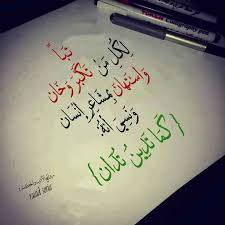 تباً
لكل من تكبر وخان
واستهان بمشاعر إنسان
ونسي أنه
{ كما تدين تدان }